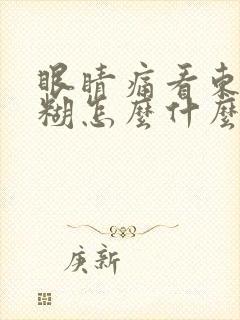 眼睛痛看東
糊怎麼什麼
庚新